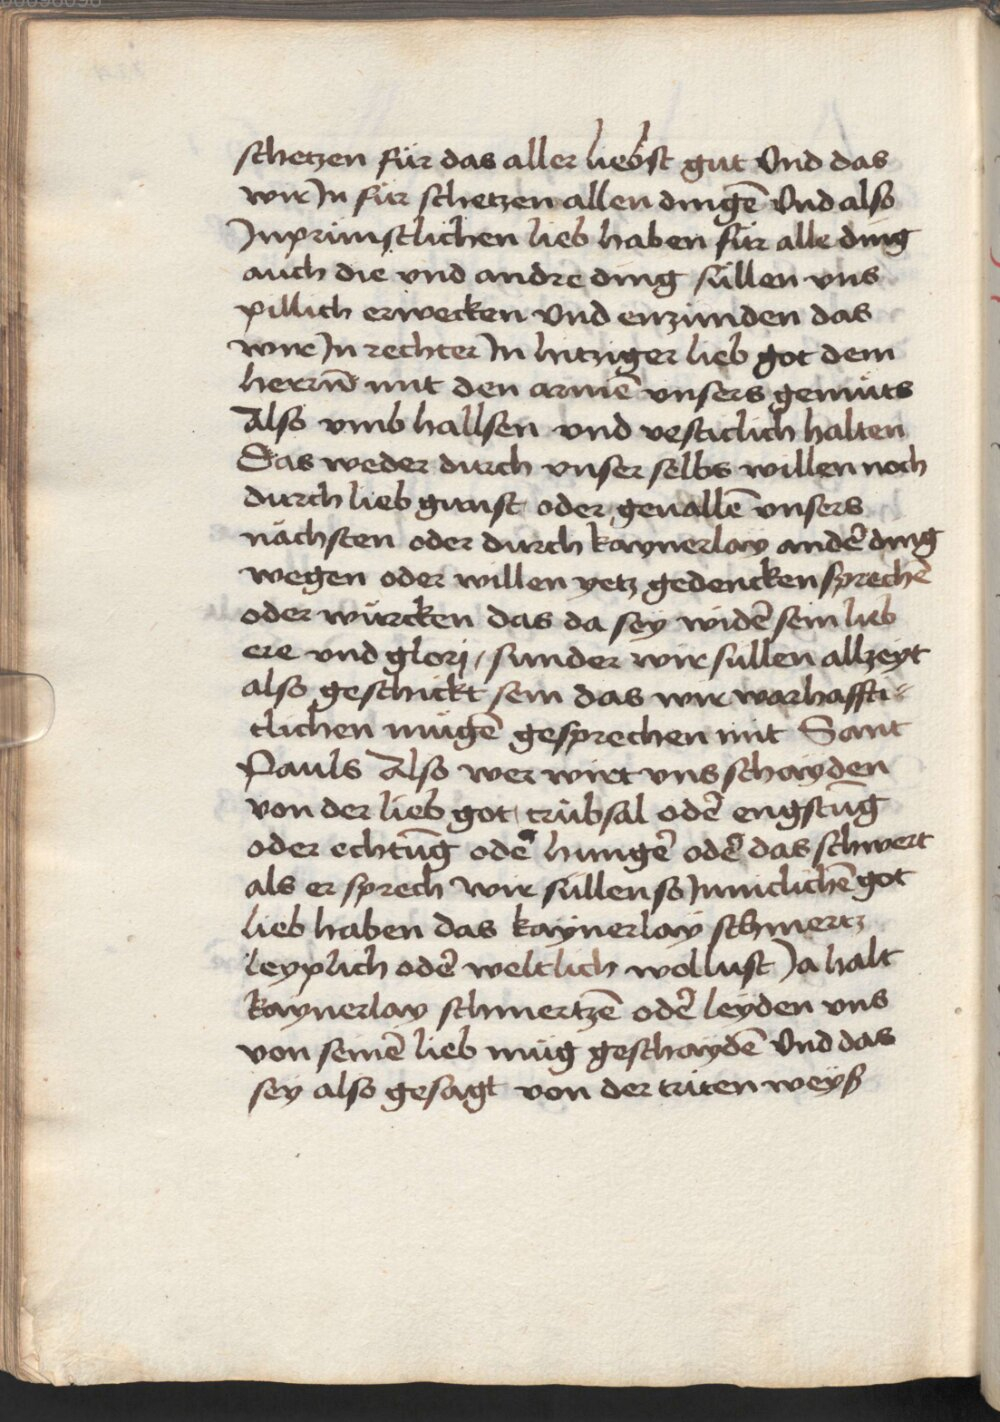 schetzen für das aller liebst gut Vnd das
wir In für schetzen allen dingē Vnd also
Inprünstlichen lieb haben für alle ding
auch die vnd andre ding süllen vns
pillich erwecken Vnd enzünden das
wir In rechter In hitziger lieb got dem
herrn̄ mit den armē vnsers gemüts
Also vmb hallsen vnd vesticlich halten
Das weder durch vnser selbs willen noch
durch lieb gunst oder geuallē vnsers
nächsten oder durch kaynerlay andē ding
wegen oder willen yetz gedencken sprechē
oder würcken das da sey widē sein lieb
ere vnd glorj / sunder wir sullen allzeyt
also geschickt sein das wir warhaffti⸗
clichen mügē gesprechen mit Sant
Pauls Also wer wirt vns schayden
von der lieb got trübsal odē engstūg
oder echtūg odē hungē odē das schwert
als er sprech wir süllen so Inniclichē got
lieb haben das kaynerlay schmertz
leyplich odē weltlich wollust Ja halt
kaynerlay schmertzē odē leyden vns
von seinē lieb müg geschaydē Vnd das
sey also gesagt von der triten weyß